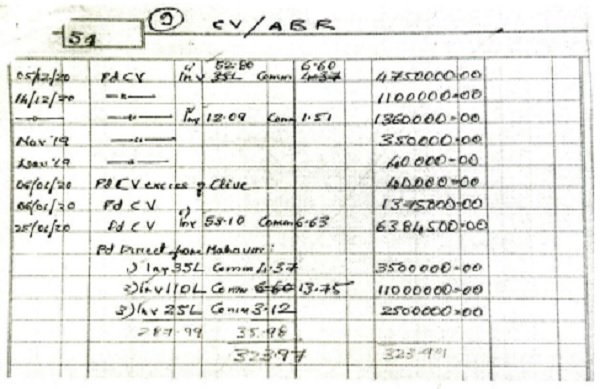 9 CV/ABR
54
05/12/20 Pd CV Inv 52.80 35L Comm 6.60 4.37 4750000=00
14/12/20 —"— 1100000=00
—"— —"— Inv 12.09 Comm 1.51 1360000=00
Nov '19 —"— 350000=00
—"— 40000=00
Pd CV excess of Clive 40000=00
Pd CV
Pd CV Inv 53.10 Comm 6.63 6384500=00
Pd Direct from
1) Inv 35L Comm 4.37 3500000=00
2) Inv 110L Comm 6.60 13.75 11000000=00
3) Inv 25L Comm 3.12 2500000=00
287.99 35.98
323.97